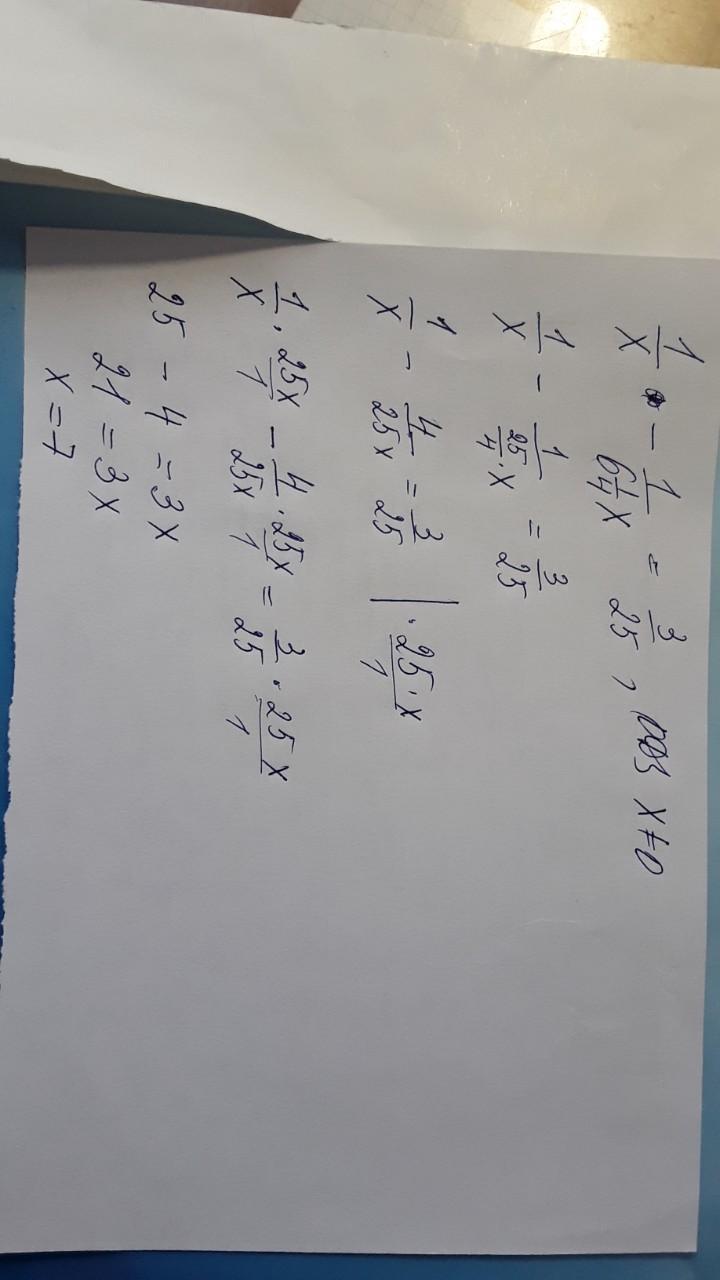 1/x - 1/(6 1/4 x) = 3/25 , x≠0
1/x - 1/(25/4 · x) = 3/25
1/x - 4/25x = 3/25 | · 25·x/1
1/x · 25x/1 - 4/25x · 25x/1 = 3/25 · 25x/1
25 - 4 = 3x
21 = 3x
x = 7